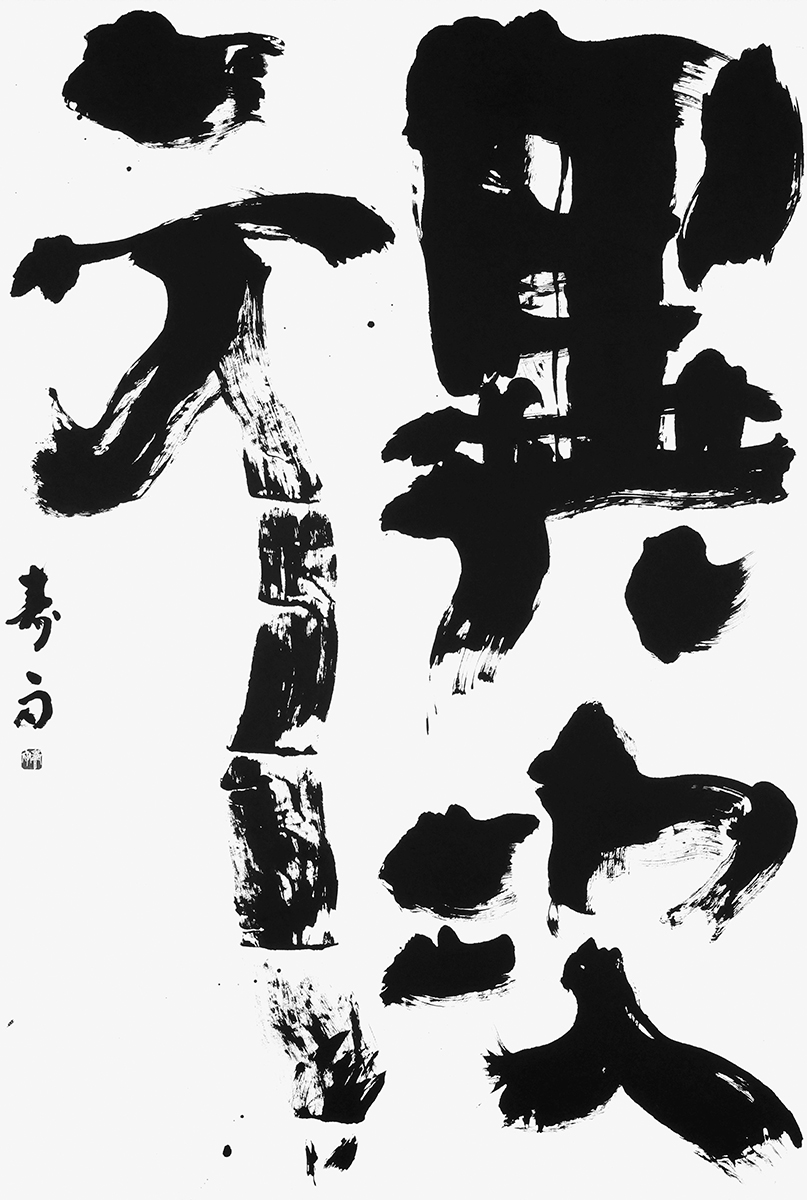 異次
元
寿